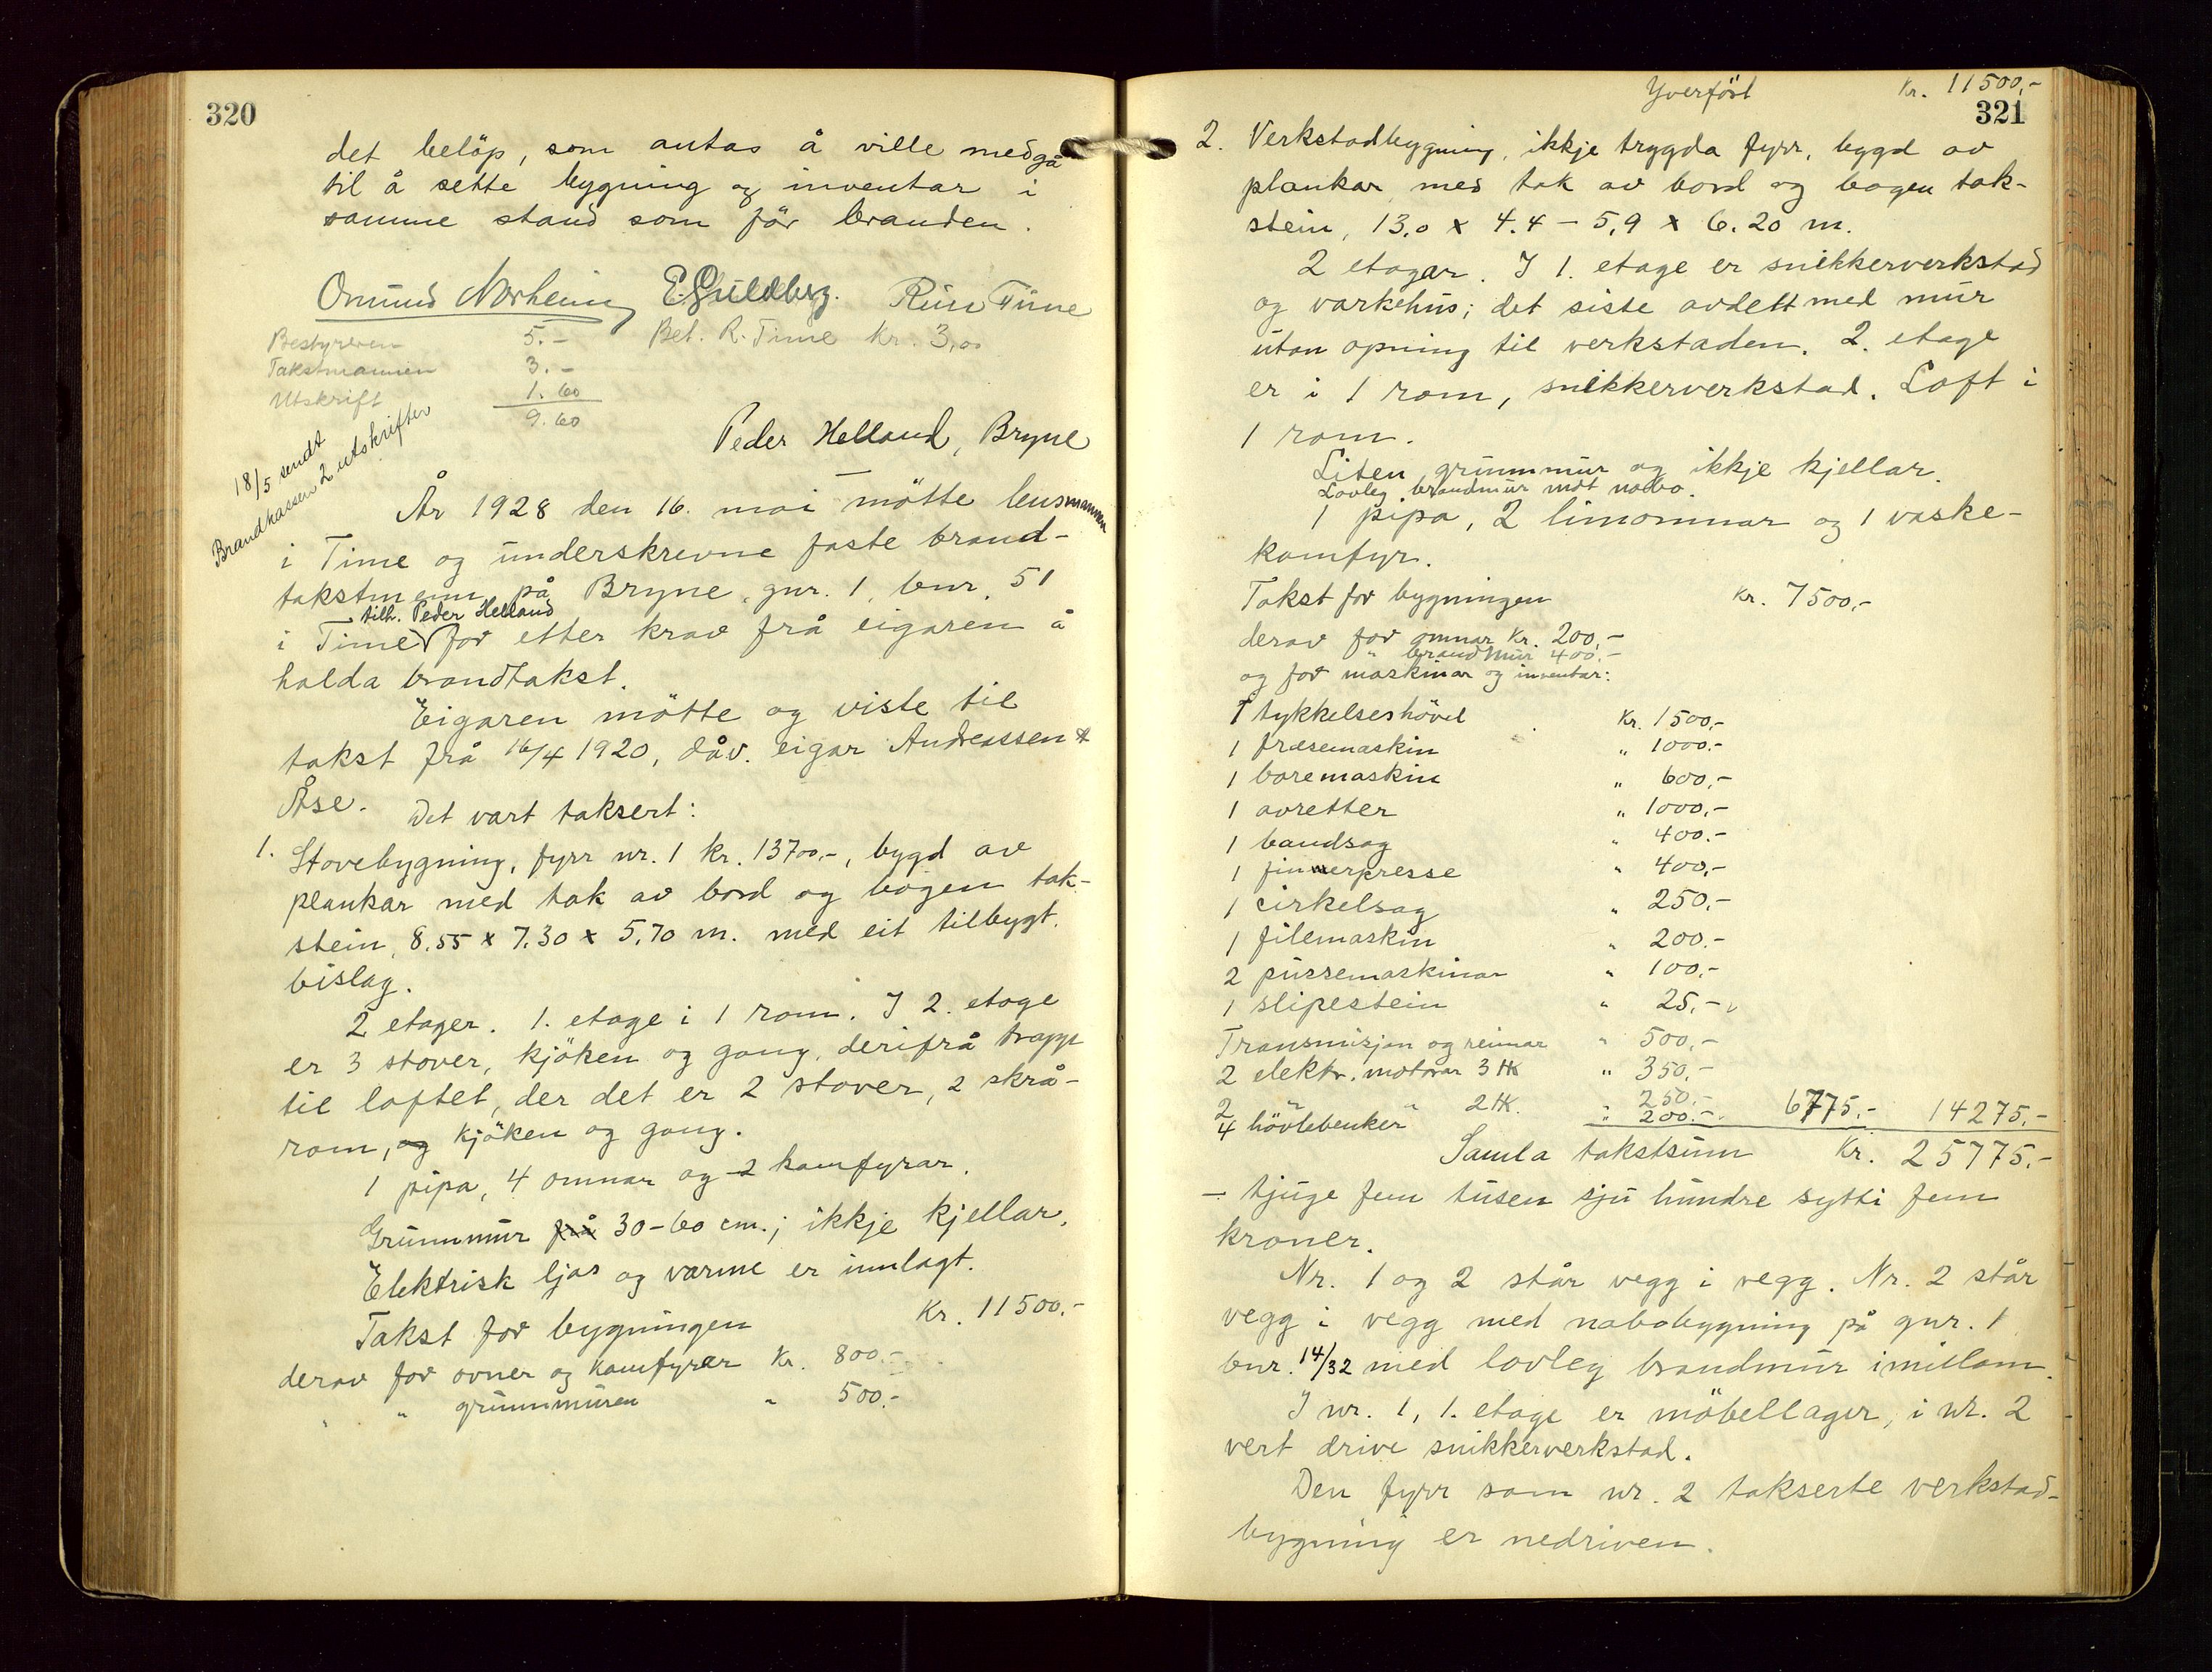 320
det beløp, som antas å ville medgå
til å sette bygning og inventar i
samme stand som før branden.
Omund Norheim E. Guldberg. Rein Time
Bestyreren 5.- Bet. R. Time kr. 3,00
Takstmannen 3.-
Utskrift 1.60
9.60
18/5 sendt
Brandkassen 2 utskrifter
Peder Helland, Bryne
År 1928 den 16. mai møtte lensmannen
i Time og underskrevne faste brand-
takstmenn på Bryne, gnr. 1, bnr. 51
tilh. Peder Helland
i Time for etter krav frå eigaren å
halda brandtakst.
Eigaren møtte og viste til
takst frå 16/4 1920, dåv. eigar Andreassen &
Åse. Det vart taksert:
1. Stovebygning, fyrr nr. 1 kr. 13700,-, bygd av
plankar med tak av bord og bogen tak-
stein, 8.55 x 7.30 x 5.70 m. med eit tilbygt.
bislag.
2 etager. 1. etage i 1 rom. I 2. etage
er 3 stover, kjøken og gang, derifrå trapp
til loftet, der det er 2 stover, 2 skrå-
rom, og kjøken og gang.
1 pipa, 4 omnar og 2 komfyrar.
Grunnmur frå 30-60 cm.; ikkje kjellar.
Elektrisk ljos og varme er innlagt.
Takst for bygningen Kr. 11500.-
derav for ovner og komfyrer Kr. 800.-
" " grunnmuren " 500.-
Yverført Kr. 11500,-
321
2. Verkstadbygning, ikkje trygda fyrr, bygd av
plankar med tak av bord og bogen tak-
stein, 13,0 x 4.4 - 5,9 x 6.20 m.
2 etagar. I 1. etage er snikkerverkstad
og varkehus; det siste avdelt med mur
utan opning til verkstaden. 2. etage
er i 1 rom, snikkerverkstad. Loft i
1 rom.
Liten grunnmur og ikkje kjellar.
Lovleg brandmur mot nabo.
1 pipa, 2 limomnar og 1 vaske-
komfyr.
Takst for bygningen Kr. 7500,-
derav for omnar Kr. 200,-
" brandmur 400.-
og for maskinar og inventar:
1 tykkelseshøvel Kr. 1500,-
1 fræsemaskin " 1000.-
1 boremaskin " 600,-
1 avretter " 1000,-
1 bandsag " 400.-
1 finnerpresse " 400,-
1 cirkelsag " 250.-
1 filemaskin " 200.-
2 pussemaskinar " 100,-
1 slipestein " 25,-
Transmisjon og reimar " 500,-
2 elektr. motorar 3 HK " 350,-
2 " " 2 HK. 250.-
4 høvlebenker " 200.- 6775,- 14275.-
Samla takstsum Kr. 25775.-
- tjuge fem tusen sju hundre sytti fem
kroner.
Nr. 1 og 2 står vegg i vegg. Nr. 2 står
vegg i vegg med nabobygning på gnr. 1
bnr. 14/32 med lovleg brandmur imillom.
I nr. 1, 1. etage er møbellager, i nr. 2
vert drive snikkerverkstad.
Den fyrr som nr. 2 takserte verkstad-
bygning er nedriven.